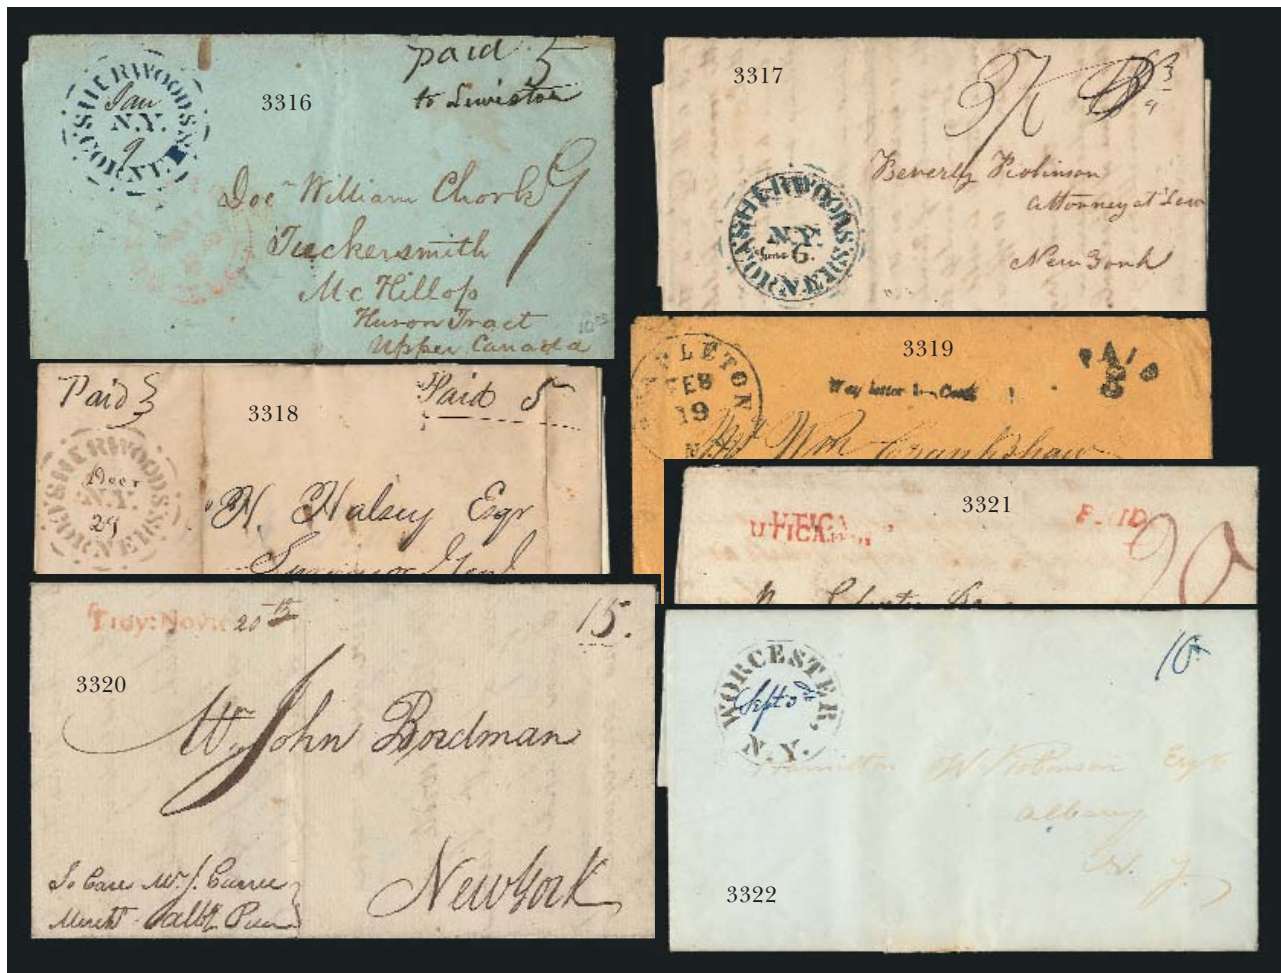 SHERWOODS
CORNER
Jan
N.Y.
9
3316
paid 5
to Lewiston
9
William
Tuckersmith
McKillop
Huron Tract
Upper Canada
3317
SHERWOODS
CORNERS
N.Y.
June 6.
Beverly Robinson
Attorney at Law
New York
3318
Paid 3
Paid 5
SHERWOODS
CORNERS
Decr
N.Y.
29
H. Halsey Esqr
3319
FEB
19
N.Y.
Way letter
PAID
3
Mr Wm Crankshaw
3321
UTICA
UTICA
PAID
20
3320
Troy: Nov
20th
15.
Mr John Bordman
To Care Mr J.
New York
3322
WORCESTER,
N.Y.
Sept
10
Hamilton W Robinson Esqr
Albany
N. Y.